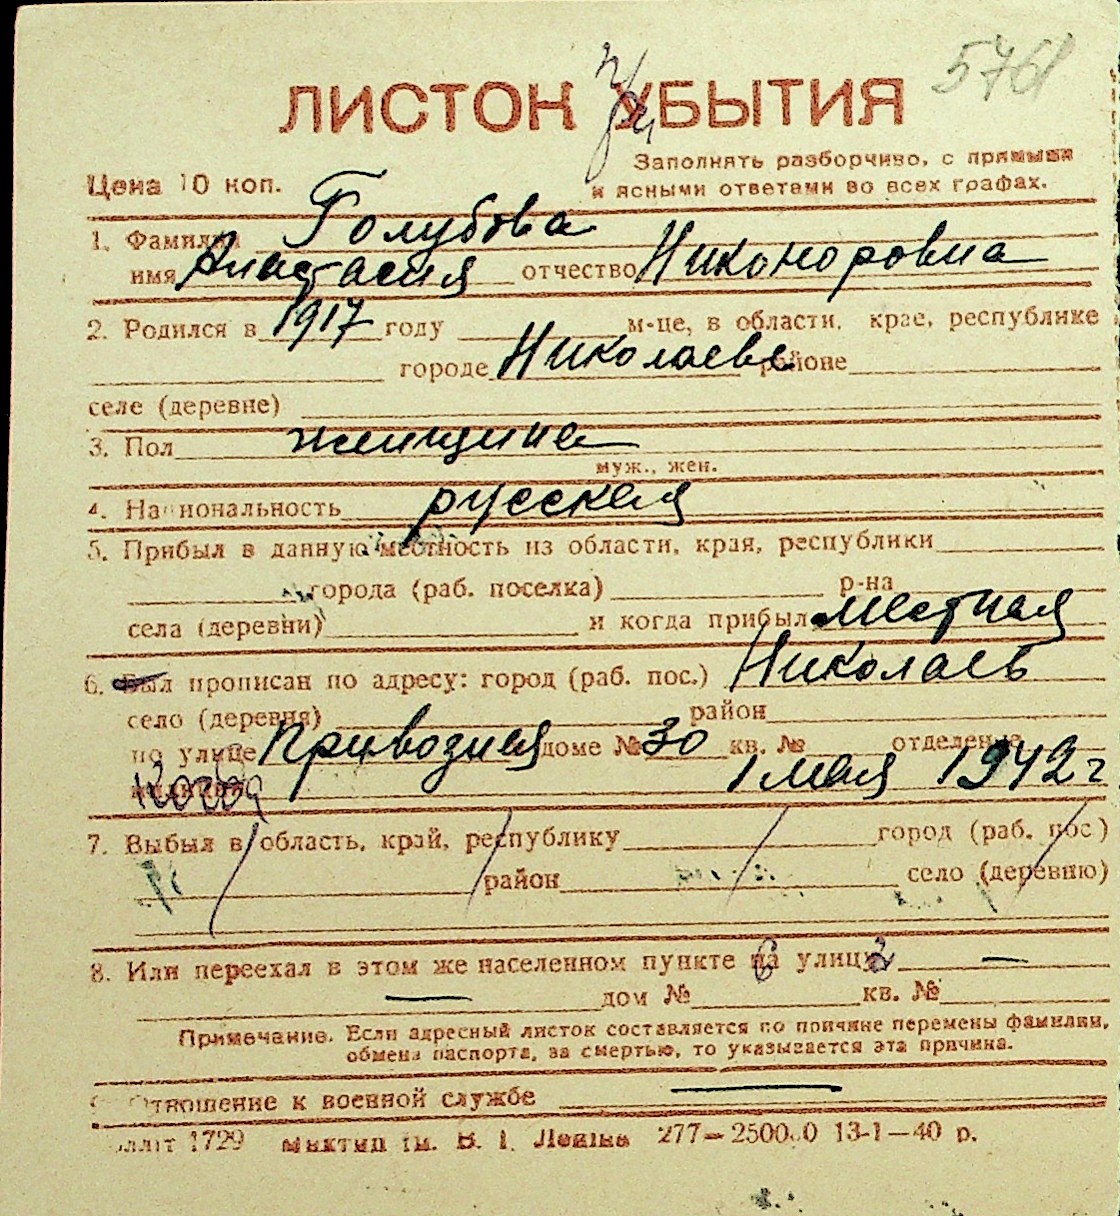 5761
ЛИСТОК УБЫТИЯ
При
Заполнять разборчиво, с прямыми
Цена 10 коп.
и ясными ответами во всех графах.
1. Фамилия Голубова
имя Анастасия отчество Никоноровна
2. Родился в 1917 году м-це, в области, крае, республике
городе Николаеве районе
селе (деревне)
3. Пол женщина
муж., жен.
4. Национальность русская
5. Прибыл в данную местность из области, края, республики
города (раб. поселка) р-на
села (деревни) и когда прибыл местная
6. Был прописан по адресу: город (раб. пос.) Николаев
село (деревня) район
по улице Привозная доме № 30 кв. № отделение
Когда 1 мая 1942 г
7. Выбыл в область, край, республику город (раб. пос)
район село (деревню)
8. Или переехал в этом же населенном пункте на улицу —
— дом № кв. №
Примечание. Если адресный листок составляется по причине перемены фамилии,
обмена паспорта, за смертью, то указывается эта причина.
Отношение к военной службе —
1729 им. В. І. Леніна 277—250000 13-1—40 р.